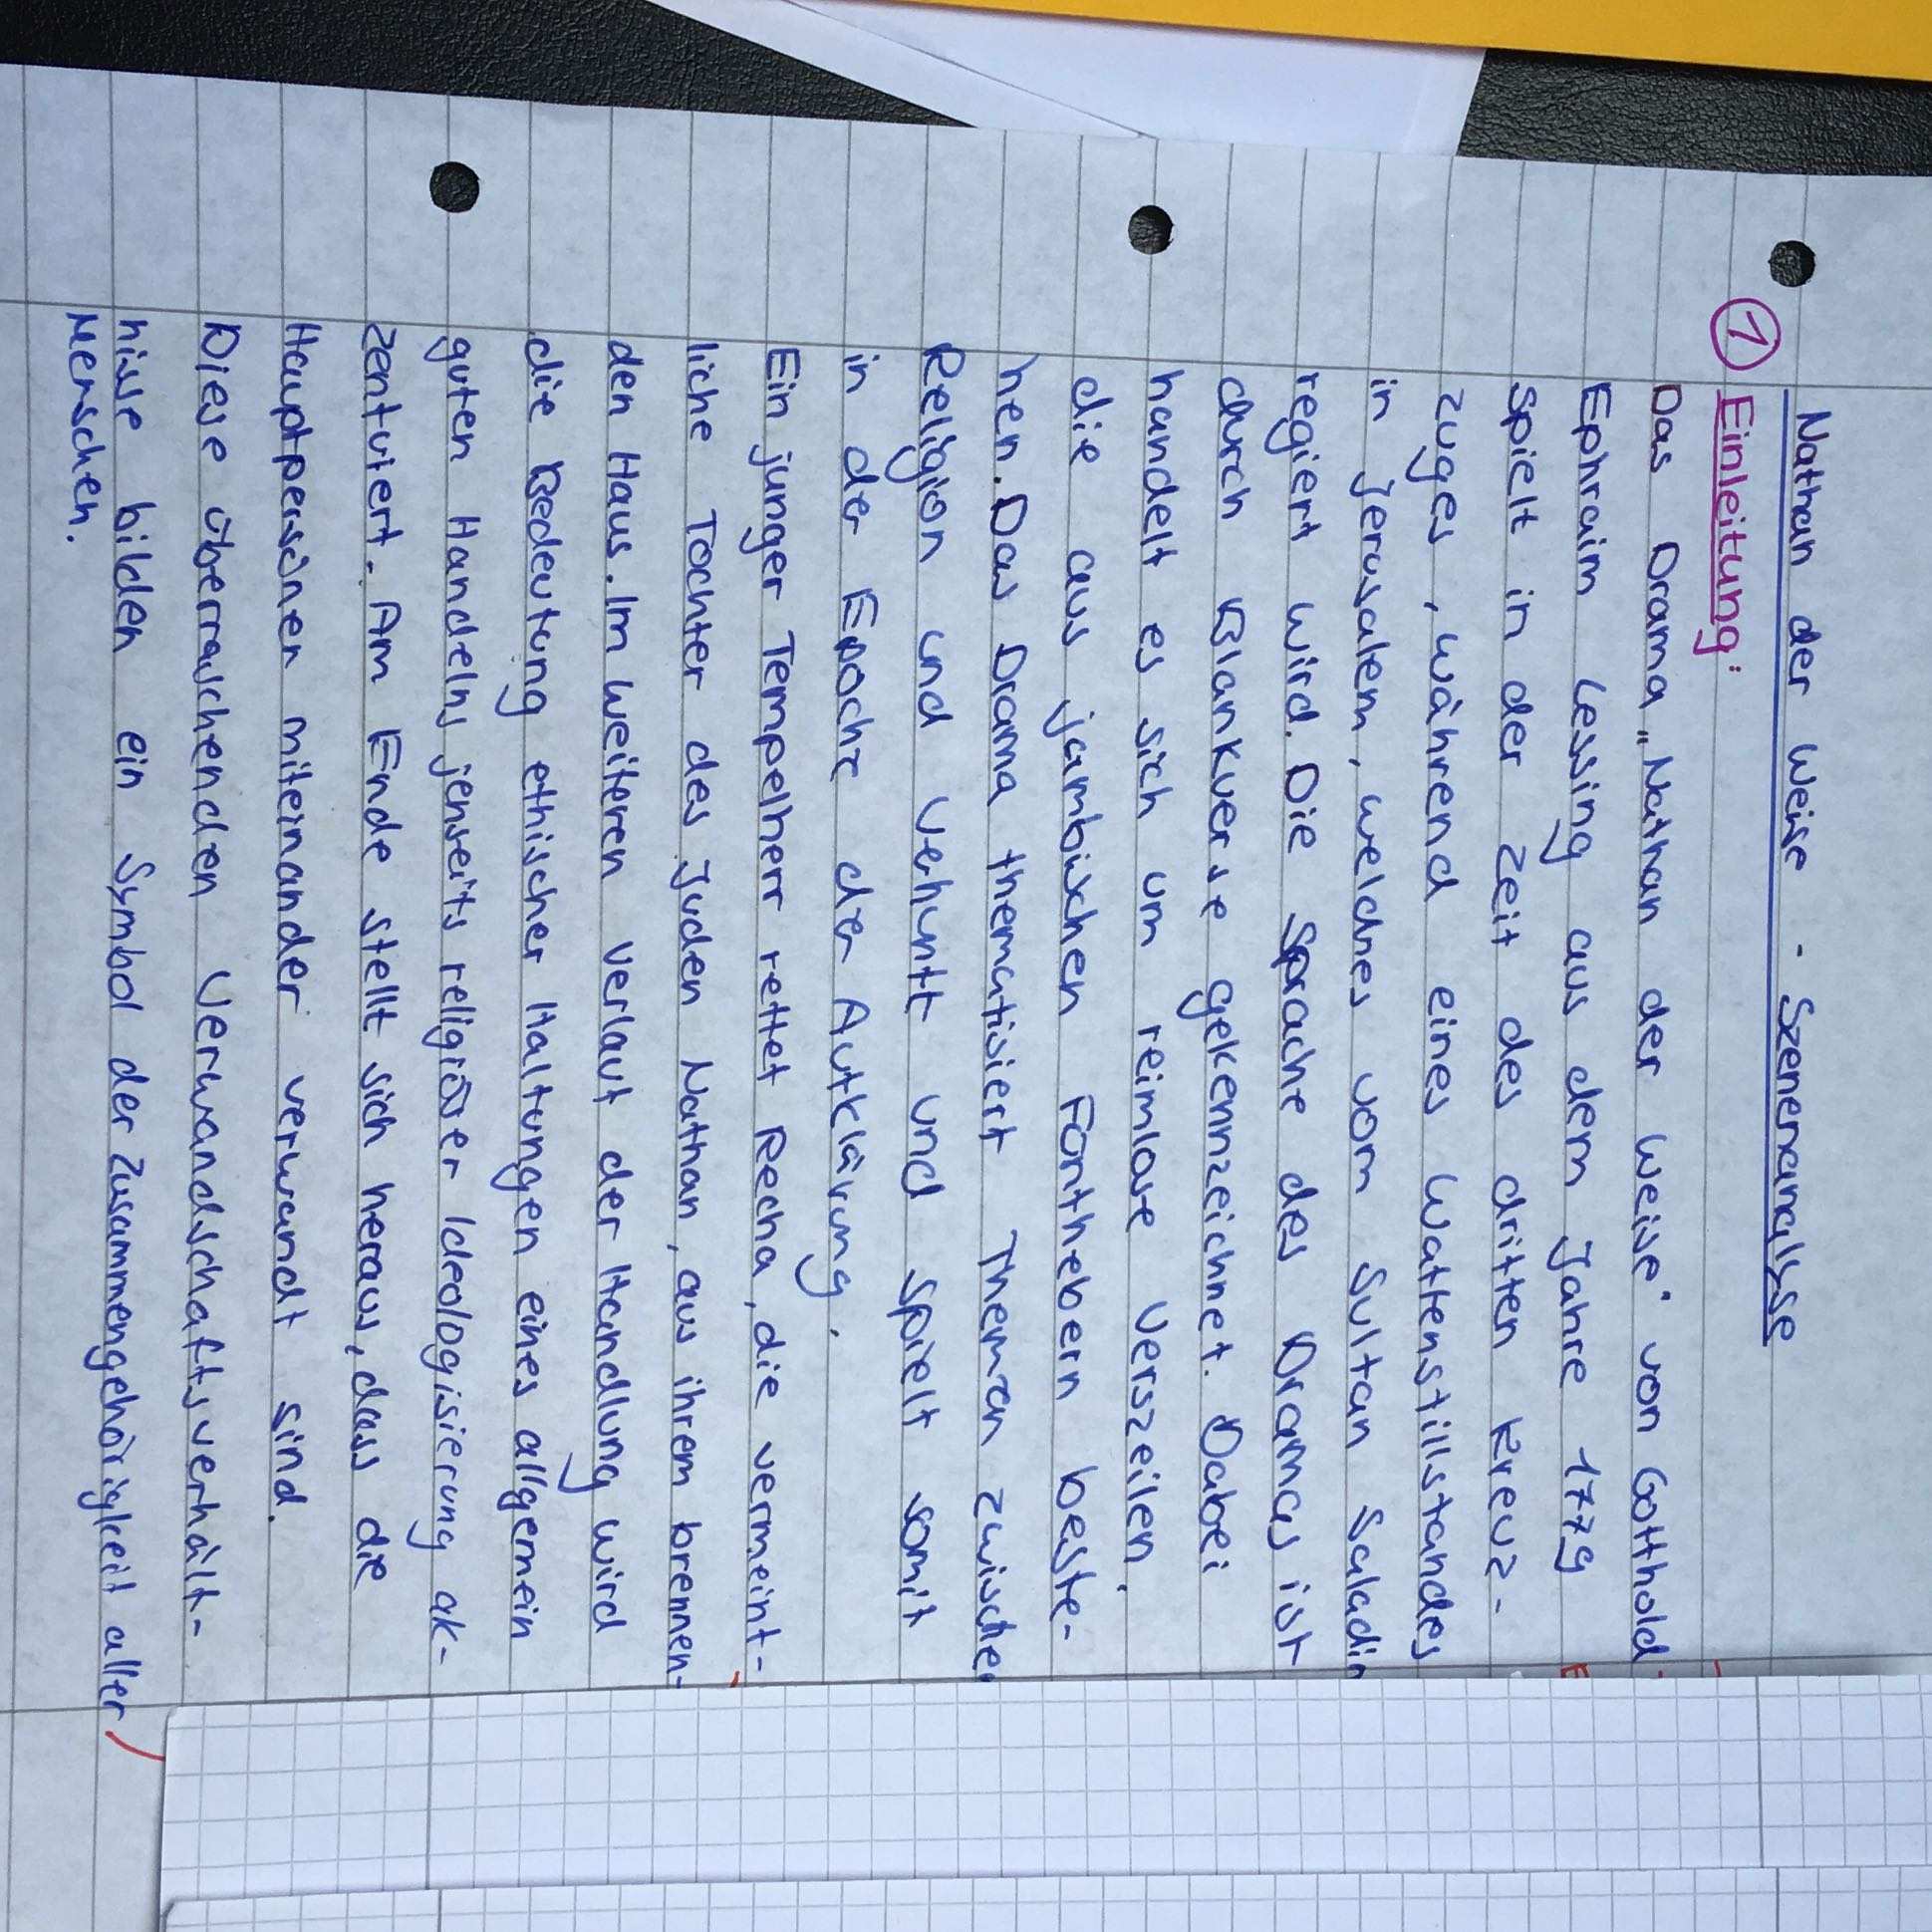 Nathan der Weise - Szenenanalyse
① Einleitung:
Das Drama „Nathan der Weise" von Gotthold
Ephraim Lessing aus dem Jahre 1779
spielt in der Zeit des dritten Kreuz-
zuges, während eines Waffenstillstandes
in Jerusalem, welches vom Sultan Saladin
regiert wird. Die Sprache des Dramas ist
durch Blankverse gekennzeichnet. Dabei
handelt es sich um reimlose Verszeilen,
die aus jambischen Fünfhebern beste-
hen. Das Drama thematisiert Themen zwischen
Religion und Vernunft und spielt somit
in der Epoche der Aufklärung.
Ein junger Tempelherr rettet Recha, die vermeint-
liche Tochter des Juden Nathan, aus ihrem brennen-
den Haus. Im weiteren Verlauf der Handlung wird
die Bedeutung ethischer Haltungen eines allgemein
guten Handelns jenseits religiöser Ideologisierung ak-
zentuiert. Am Ende stellt sich heraus, dass die
Hauptpersonen miteinander verwandt sind.
Diese überraschenden Verwandschaftsverhält-
nisse bilden ein Symbol der Zusammengehörigkeit aller
Menschen.